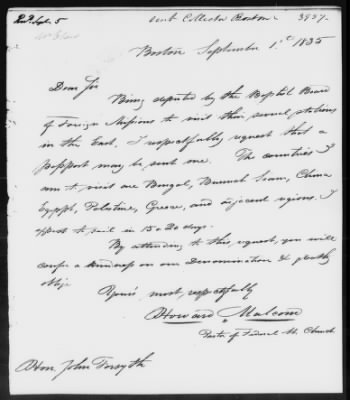 Recd. Sept. 5
sent Collector Boston 3957.
Boston September 1st 1835
Dear Sir
Being deputed by the Baptist Board
of Foreign Missions to visit their several stations
in the East, I respectfully request that a
passport may be sent me. The countries I
am to visit are Bengal, Burmah Siam, China
Egypt, Palestine, Greece, and adjacent regions. I
expect to sail in 15 or 20 days.
By attending to this request, you will
confer a kindness on our Denomination & greatly
oblige
Yours most respectfully
Howard Malcom
Pastor of Federal St. Church
Hon. John Forsyth